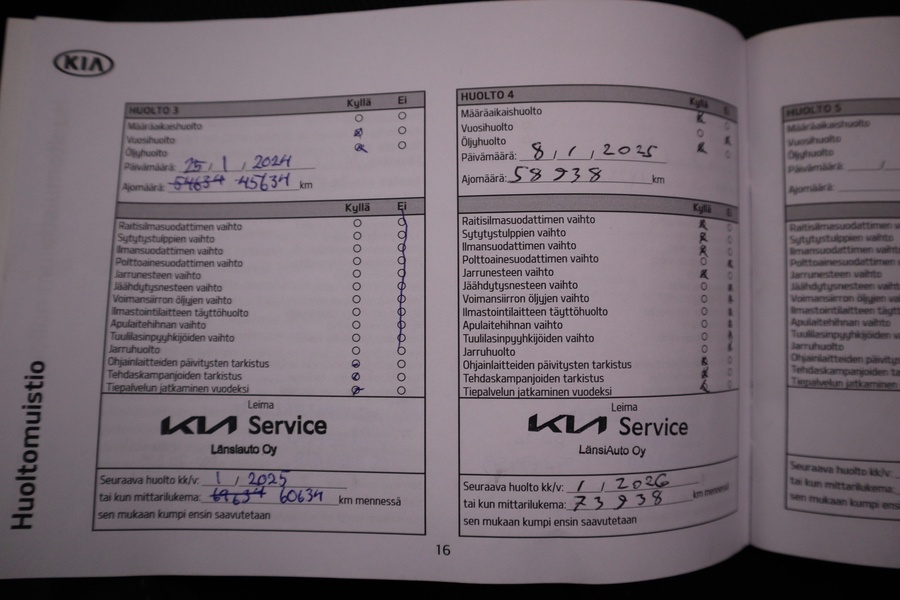 KIA
Huoltomuistio
HUOLTO 3 Kyllä Ei
Määräaikaishuolto
Vuosihuolto
Öljyhuolto
Päivämäärä: 25 / 1 / 2024
Ajomäärä: 54634 45634 km
Kyllä Ei
Raitisilmasuodattimen vaihto
Sytytystulppien vaihto
Ilmansuodattimen vaihto
Polttoainesuodattimen vaihto
Jarrunesteen vaihto
Jäähdytysnesteen vaihto
Voimansiirron öljyjen vaihto
Ilmastointilaitteen täyttöhuolto
Apulaitehihnan vaihto
Tuulilasinpyyhkijöiden vaihto
Jarruhuolto
Ohjainlaitteiden päivitysten tarkistus
Tehdaskampanjoiden tarkistus
Tiepalvelun jatkaminen vuodeksi
Leima
KIA Service
Länsiauto Oy
Seuraava huolto kk/v: 1 / 2025
tai kun mittarilukema: 69634 60634 km mennessä
sen mukaan kumpi ensin saavutetaan
HUOLTO 4 Kyllä Ei
Määräaikaishuolto
Vuosihuolto
Öljyhuolto
Päivämäärä: 8 / 1 / 2025
Ajomäärä: 58938 km
Kyllä Ei
Raitisilmasuodattimen vaihto
Sytytystulppien vaihto
Ilmansuodattimen vaihto
Polttoainesuodattimen vaihto
Jarrunesteen vaihto
Jäähdytysnesteen vaihto
Voimansiirron öljyjen vaihto
Ilmastointilaitteen täyttöhuolto
Apulaitehihnan vaihto
Tuulilasinpyyhkijöiden vaihto
Jarruhuolto
Ohjainlaitteiden päivitysten tarkistus
Tehdaskampanjoiden tarkistus
Tiepalvelun jatkaminen vuodeksi
Leima
KIA Service
LänsiAuto Oy
Seuraava huolto kk/v: 1 / 2026
tai kun mittarilukema: 73938 km mennessä
sen mukaan kumpi ensin saavutetaan
16
HUOLTO 5
Määräaikaishuolto
Vuosihuolto
Öljyhuolto
Päivämäärä: /
Ajomäärä:
Raitisilmasuodattimen
Sytytystulppien vaihto
Ilmansuodattimen vaihto
Polttoainesuodattimen
Jarrunesteen vaihto
Jäähdytysnesteen vaihto
Voimansiirron öljyjen
Ilmastointilaitteen
Apulaitehihnan vaihto
Tuulilasinpyyhkijöiden
Jarruhuolto
Ohjainlaitteiden
Tehdaskampanjoiden
Tiepalvelun jatkaminen
Seuraava huolto kk/v:
tai kun mittarilukema:
sen mukaan kumpi